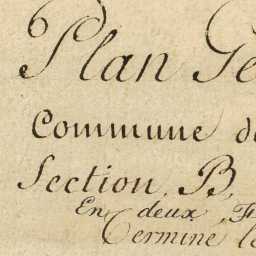 Plan Ge
Commune d
Section, B,
En deux F
Terminé le